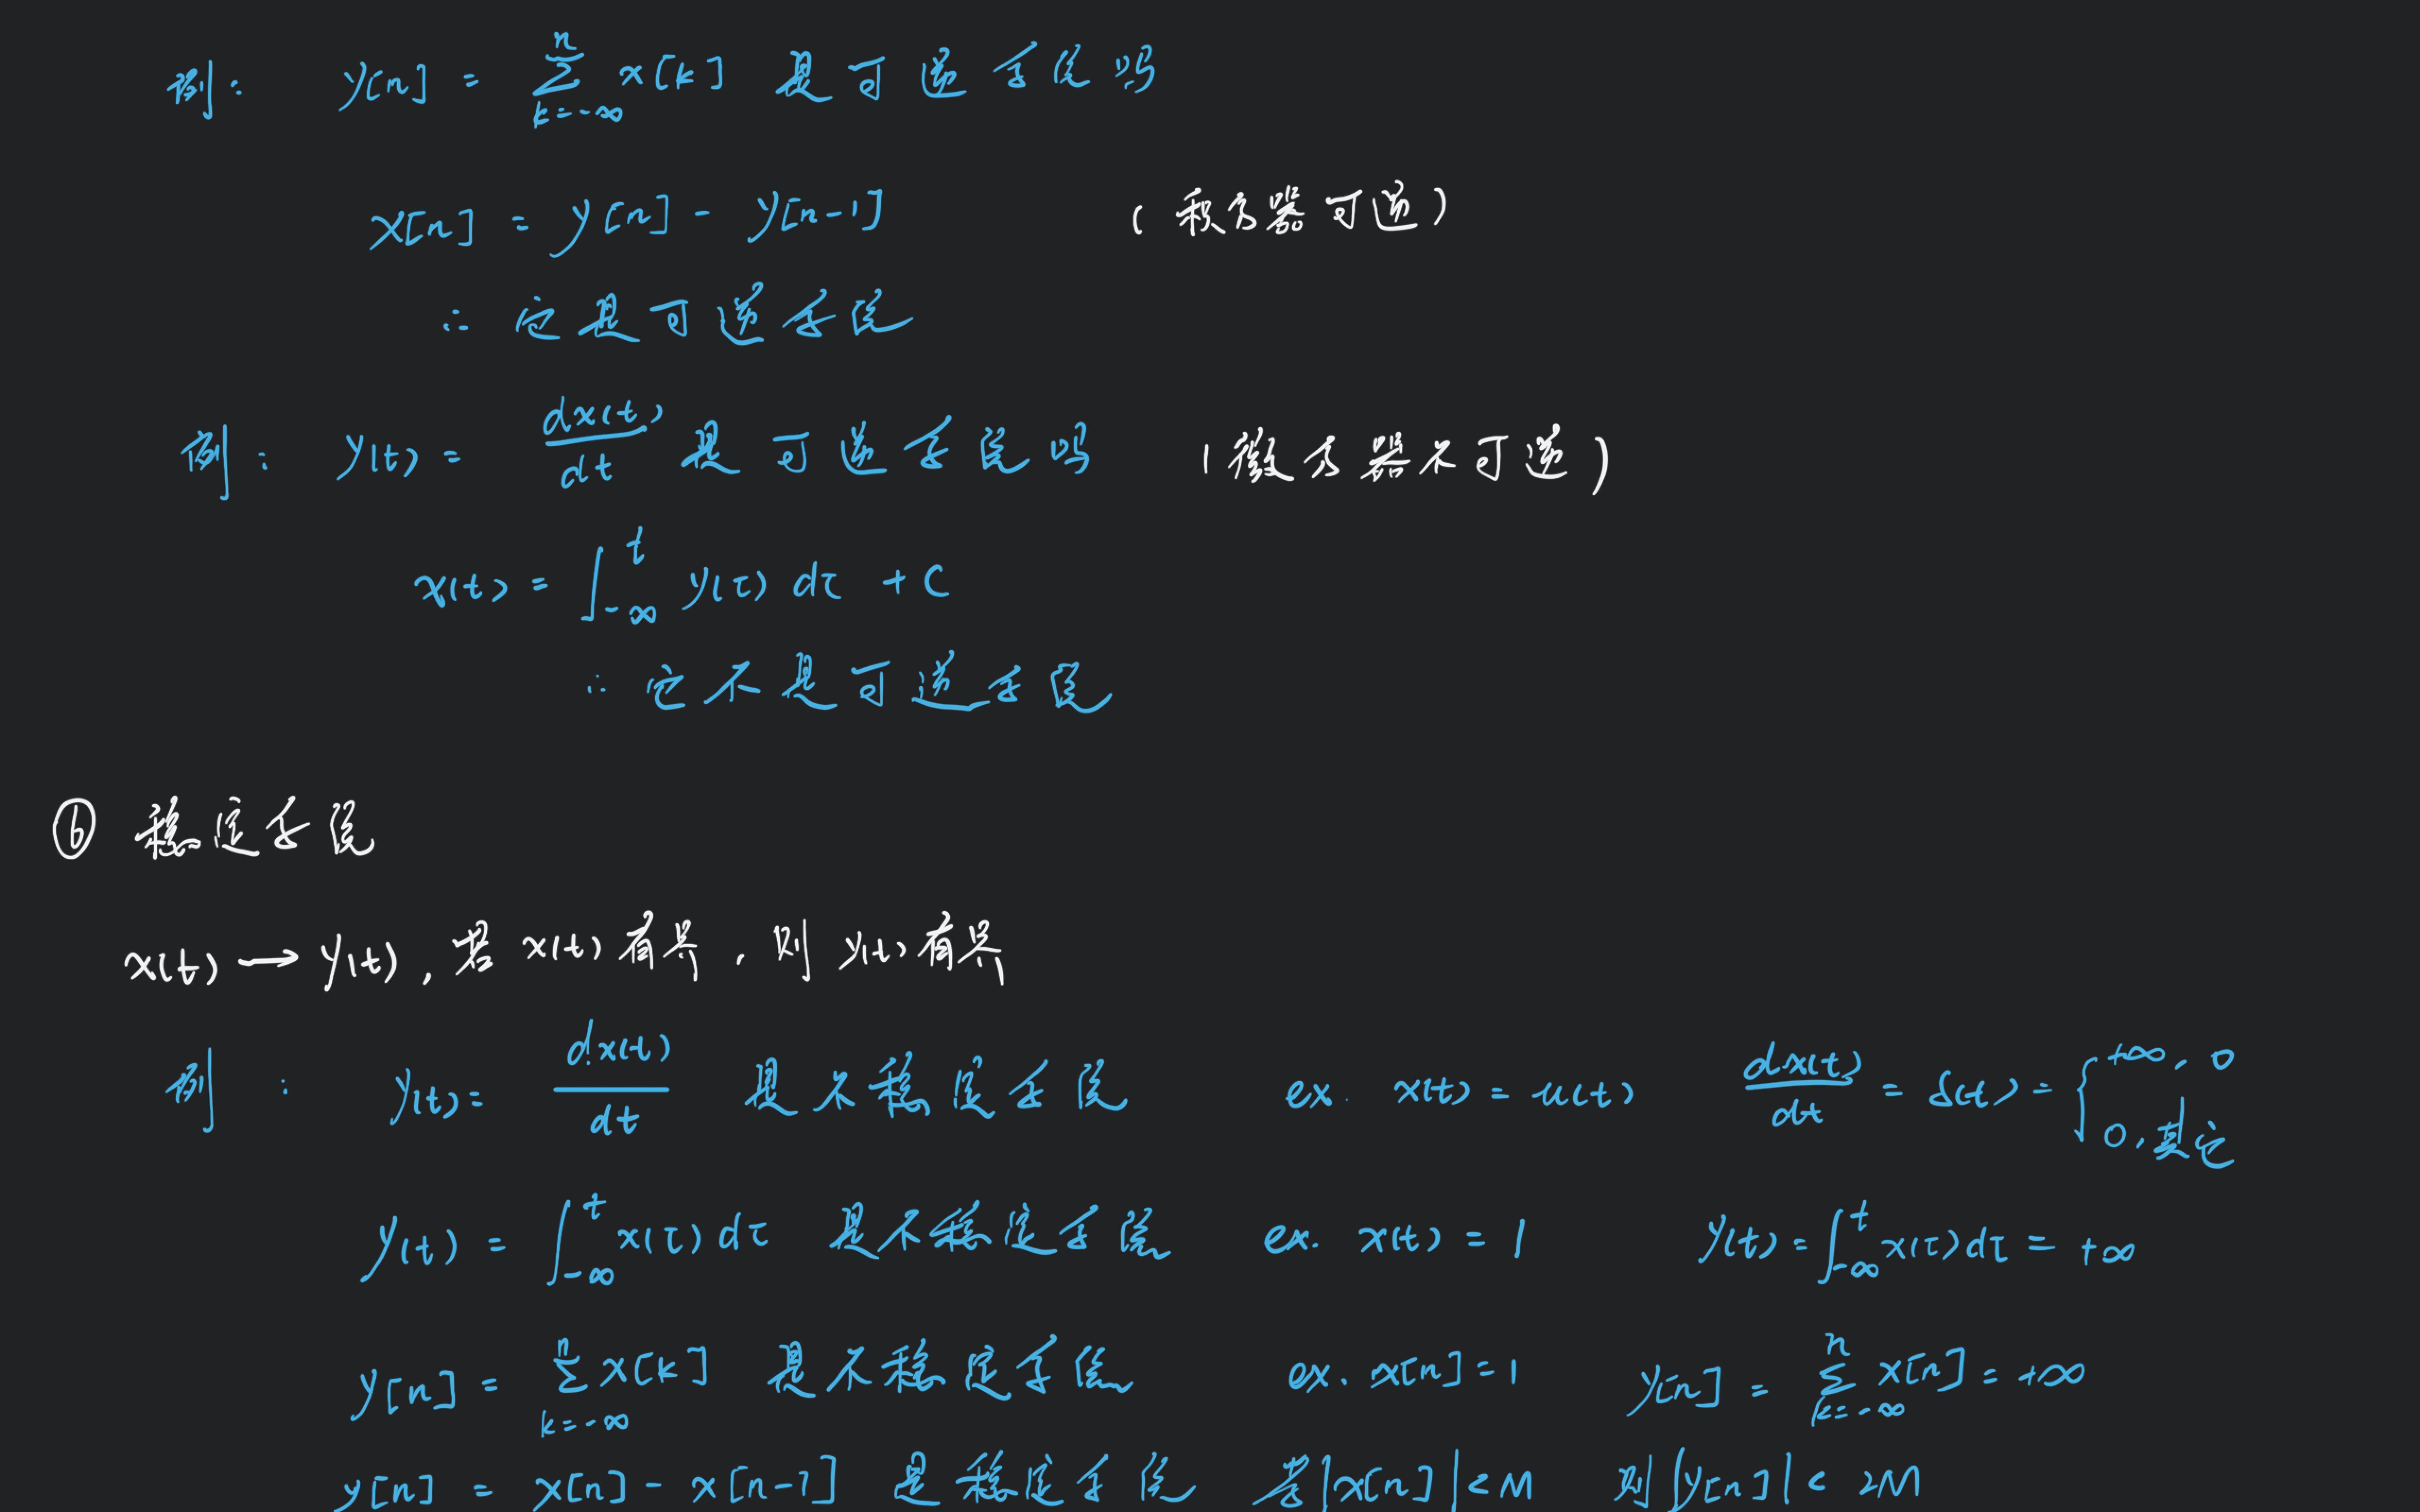 例: y[n] = ∑_{k=-∞}^{n} x[k] 是可逆系统吗
x[n] = y[n] - y[n-1] (积分器可逆)
∴ 它是可逆系统
例: y(t) = dx(t)/dt 是可逆系统吗 (微分器不可逆)
x(t) = ∫_{-∞}^{t} y(τ) dτ + C
∴ 它不是可逆系统
⑥ 稳定系统
x(t) → y(t), 若 x(t) 有界, 则 y(t) 有界
例: y(t) = dx(t)/dt 是不稳定系统 ex. x(t) = u(t) dx(t)/dt = δ(t) = { +∞, 0 ; 0, 其它
y(t) = ∫_{-∞}^{t} x(τ) dτ 是不稳定系统 ex. x(t) = 1 y(t) = ∫_{-∞}^{t} x(τ) dτ = +∞
y[n] = ∑_{k=-∞}^{n} x[k] 是不稳定系统 ex. x[n] = 1 y[n] = ∑_{k=-∞}^{n} x[n] = +∞
y[n] = x[n] - x[n-1] 是稳定系统 若 |x[n]| < M 则 |y[n]| < 2M